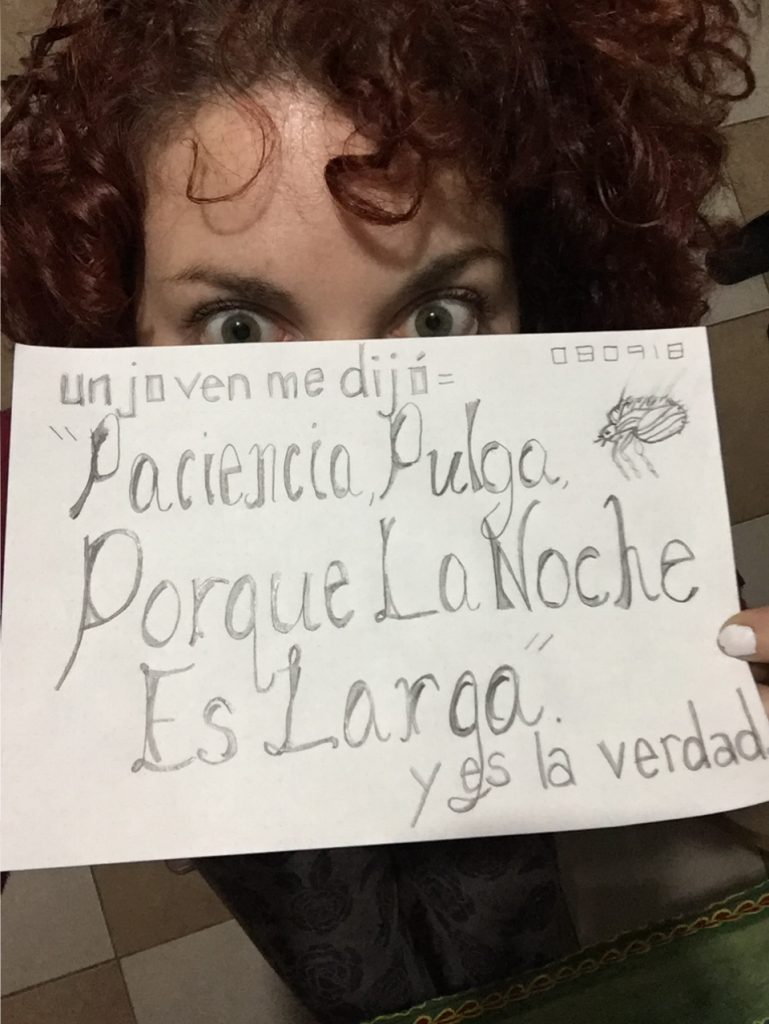 un joven me dijó=
080918
"Paciencia, Pulga,
Porque La Noche
Es Larga".
y es la verdad.